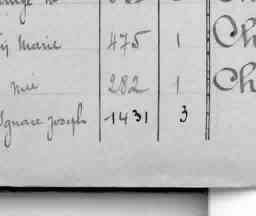 Marie 475 1 Ch
mé 282 1 Ch
Ignace Joseph 1431 3